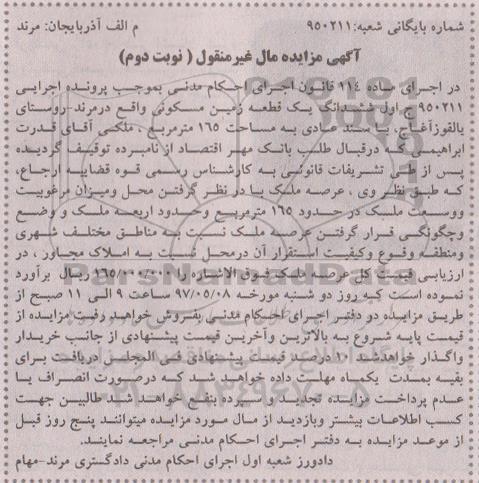 شماره بایگانی شعبه: ۹۵۰۲۱۱ م الف آذربایجان: مرند
آگهی مزایده مال غیرمنقول ( نوبت دوم)
در اجرای ماده ۱۱۴ قانون اجرای احکام مدنی بموجب پرونده اجرایی
۹۵۰۲۱۱ ج اول ششدانگ یک قطعه زمین مسکونی واقع درمرند-روستای
یالقوزآغاج، با سند عادی به مساحت ۱۶۵ مترمربع ، ملکی آقای قدرت
ابراهیمی که درقبال طلب بانک مهر اقتصاد از نامبرده توقیف گردیده
پس از طی تشریفات قانونی به کارشناس رسمی قوه قضاییه ارجاع،
که طبق نظر وی ، عرصه ملک با در نظر گرفتن محل ومیزان مرغوبیت
ووسعت ملک در حدود ۱۶۵ مترمربع وحدود اربعه ملک و وضع
وچگونگی قرار گرفتن عرصه ملک نسبت به مناطق مختلف شهری
ومنطقه وقوع وکیفیت استقرار آن درمحل نسبت به املاک مجاور ، در
ارزیابی قیمت کل عرصه ملک فوق الاشاره را ۱۶۵/۰۰۰/۰۰۰ ریال برآورد
نموده است که روز دو شنبه مورخه ۹۷/۰۵/۰۸ ساعت ۹ الی ۱۱ صبح از
طریق مزایده دو دفتر اجرای احکام مدنی بفروش خواهد رفت مزایده از
قیمت پایه شروع به بالاترین وآخرین قیمت پیشنهادی از جانب خریدار
واگذار خواهدشد ۱۰ درصد قیمت پیشنهادی فی المجلس دریافت برای
بقیه بمدت یکماه مهلت داده خواهد شد که درصورت انصراف یا
عدم پرداخت مزایده تجدید و سپرده بنفع خواهد شد طالبین جهت
کسب اطلاعات بیشتر وبازدید از مال مورد مزایده میتوانند پنج روز قبل
از موعد مزایده به دفتر اجرای احکام مدنی مراجعه نمایند.
دادورز شعبه اول اجرای احکام مدنی دادگستری مرند-مهام
ParsNamadData